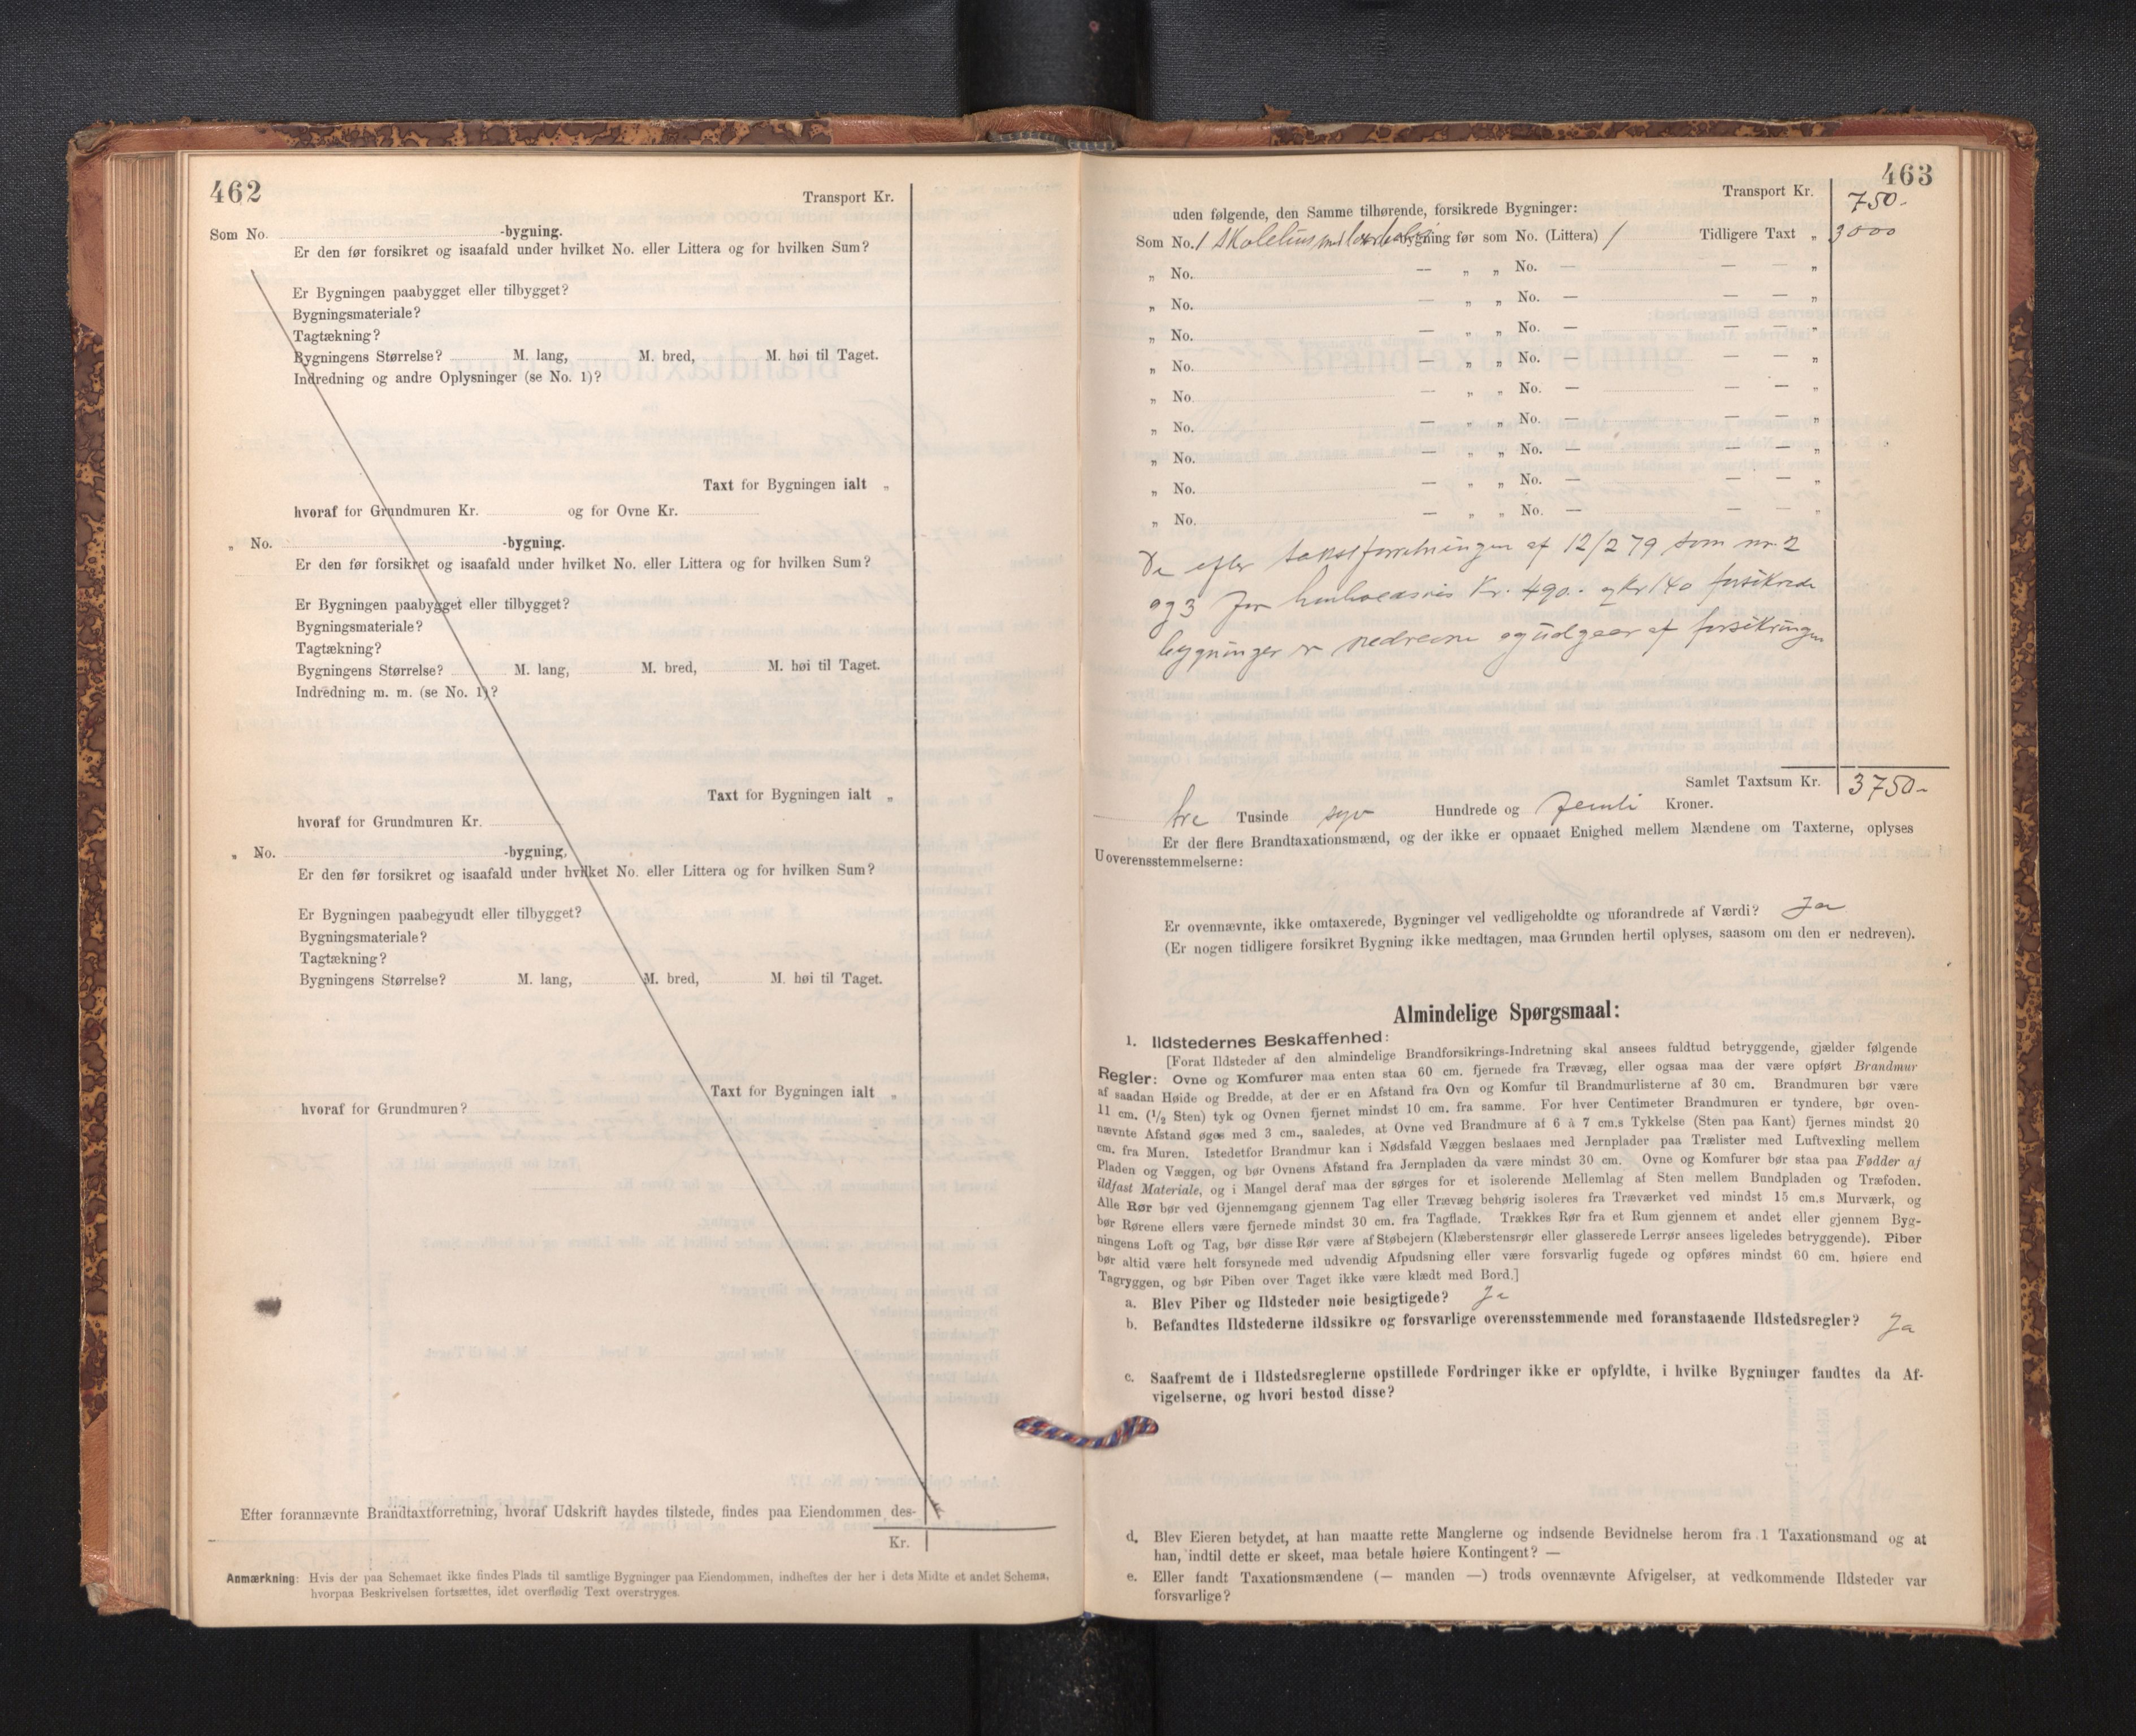 462
Transport Kr.
Som No. -bygning.
Er den før forsikret og isaafald under hvilket No. eller Littera og for hvilken Sum?
Er Bygningen paabygget eller tilbygget?
Bygningsmateriale?
Tagtækning?
Bygningens Størrelse? M. lang, M. bred, M. høi til Taget.
Indredning og andre Oplysninger (se No. 1)?
Taxt for Bygningen ialt „
hvoraf for Grundmuren Kr. og for Ovne Kr.
„ No. -bygning.
Er den før forsikret og isaafald under hvilket No. eller Littera og for hvilken Sum?
Er Bygningen paabygget eller tilbygget?
Bygningsmateriale?
Tagtækning?
Bygningens Størrelse? M. lang, M. bred, M. høi til Taget.
Indredning m. m. (se No. 1)?
Taxt for Bygningen ialt „
hvoraf for Grundmuren Kr.
„ No. -bygning,
Er den før forsikret og isaafald under hvilket No. eller Littera og for hvilken Sum?
Er Bygningen paabegyndt eller tilbygget?
Bygningsmateriale?
Tagtækning?
Bygningens Størrelse? M. lang, M. bred, M. høi til Taget.
Taxt for Bygningen ialt „
hvoraf for Grundmuren?
Efter forannævnte Brandtaxtforretning, hvoraf Udskrift havdes tilstede, findes paa Eiendommen des-
Kr.
Anmærkning: Hvis der paa Schemaet ikke findes Plads til samtlige Bygninger paa Eiendommen, indheftes der her i dets Midte et andet Schema,
hvorpaa Beskrivelsen fortsættes, idet overflødig Text overstryges.
463
Transport Kr. 750-
uden følgende, den Samme tilhørende, forsikrede Bygninger:
Som No. 1 Skolehus med -bygning før som No. (Littera) 1 Tidligere Taxt „ 3000
„ No. — „ „ No. — — — „
„ No. — „ „ No. — — — „
„ No. — „ „ No. — — — „
„ No. — „ „ No. — — — „
„ No. — „ „ No. — — — „
„ No. — „ „ No. — — — „
„ No. — „ „ No. — — — „
„ No. — „ „ No. — — — „
„ No. — „ „ No. — — — „
De efter takstforretningen af 12/2 79 som nr. 2
og 3 for henholdsvis Kr. 490.- og kr 140 forsikrede
bygninger er nedrevne og udgaar af forsikringen
Samlet Taxtsum Kr. 3750-
tre Tusinde syv Hundrede og femti Kroner.
Er der flere Brandtaxationsmænd, og der ikke er opnaaet Enighed mellem Mændene om Taxterne, oplyses
Uoverensstemmelserne:
Er ovennævnte, ikke omtaxerede, Bygninger vel vedligeholdte og uforandrede af Værdi? Ja
(Er nogen tidligere forsikret Bygning ikke medtagen, maa Grunden hertil oplyses, saasom om den er nedreven).
Almindelige Spørgsmaal:
1. Ildstedernes Beskaffenhed:
[Forat Ildsteder af den almindelige Brandforsikrings-Indretning skal ansees fuldtud betryggende, gjælder følgende
Regler: Ovne og Komfurer maa enten staa 60 cm. fjernede fra Trævæg, eller ogsaa maa der være opført Brandmur
af saadan Høide og Bredde, at der er en Afstand fra Ovn og Komfur til Brandmurlisterne af 30 cm. Brandmuren bør være
11 cm. (1/2 Sten) tyk og Ovnen fjernet mindst 10 cm. fra samme. For hver Centimeter Brandmuren er tyndere, bør oven-
nævnte Afstand øges med 3 cm., saaledes, at Ovne ved Brandmure af 6 à 7 cm.s Tykkelse (Sten paa Kant) fjernes mindst 20
cm. fra Muren. Istedetfor Brandmur kan i Nødsfald Væggen beslaaes med Jernplader paa Trælister med Luftvexling mellem
Pladen og Væggen, og bør Ovnens Afstand fra Jernpladen da være mindst 30 cm. Ovne og Komfurer bør staa paa Fødder af
ildfast Materiale, og i Mangel deraf maa der sørges for et isolerende Mellemlag af Sten mellem Bundpladen og Træfoden.
Alle Rør bør ved Gjennemgang gjennem Tag eller Trævæg behørig isoleres fra Træværket ved mindst 15 cm.s Murværk, og
bør Rørene ellers være fjernede mindst 30 cm. fra Tagflade. Trækkes Rør fra et Rum gjennem et andet eller gjennem Byg-
ningens Loft og Tag, bør disse Rør være af Støbejern (Klæberstensrør eller glasserede Lerrør ansees ligeledes betryggende). Piber
bør altid være helt forsynede med udvendig Afpudsning eller være forsvarlig fugede og opføres mindst 60 cm. høiere end
Tagryggen, og bør Piben over Taget ikke være klædt med Bord.]
a. Blev Piber og Ildsteder nøie besigtigede? Ja
b. Befandtes Ildstederne ildssikre og forsvarlige overensstemmende med foranstaaende Ildstedsregler? Ja
c. Saafremt de i Ildstedsreglerne opstillede Fordringer ikke er opfyldte, i hvilke Bygninger fandtes da Af-
vigelserne, og hvori bestod disse?
d. Blev Eieren betydet, at han maatte rette Manglerne og indsende Bevidnelse herom fra 1 Taxationsmand og at
han, indtil dette er skeet, maa betale høiere Kontingent? —
e. Eller fandt Taxationsmændene (— manden —) trods ovennævnte Afvigelser, at vedkommende Ildsteder var
forsvarlige?